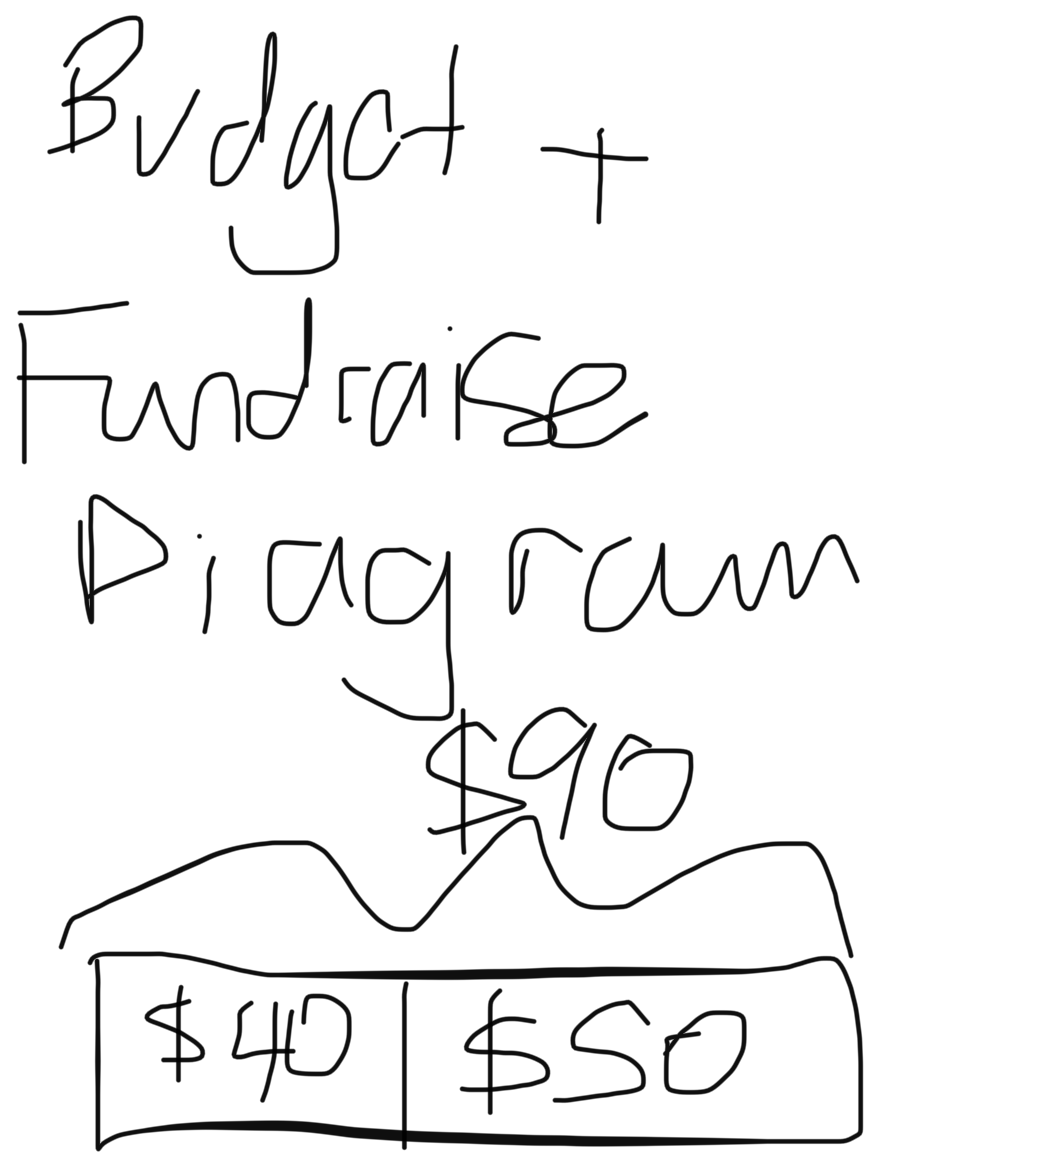 Budget +
Fundraise
Diagram
$90
$40 $50